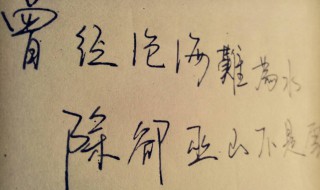 曾经沧海難為水
除卻巫山不是